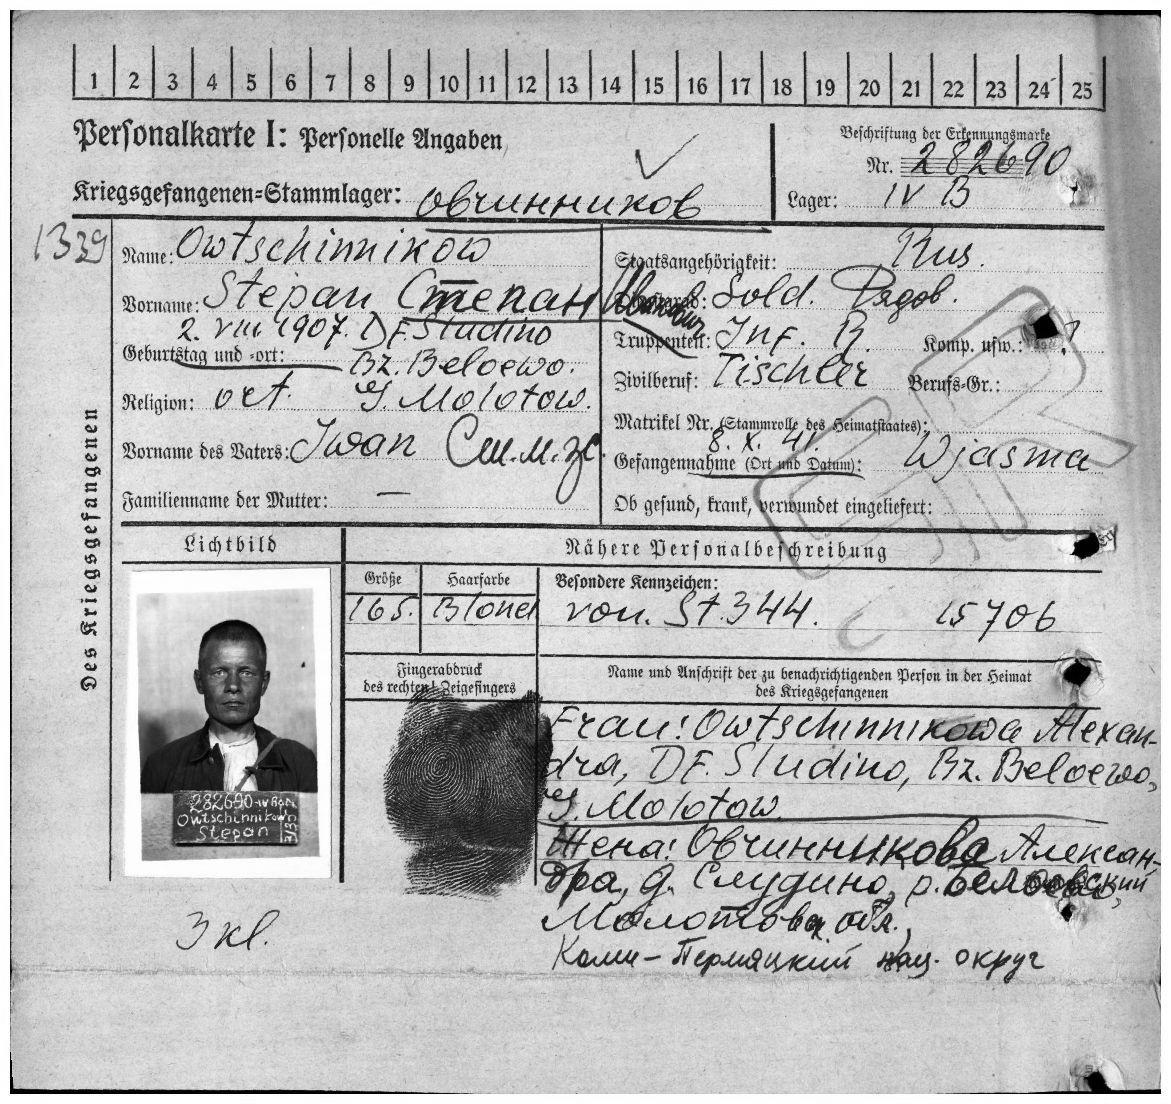 1 2 3 4 5 6 7 8 9 10 11 12 13 14 15 16 17 18 19 20 21 22 23 24 25
Personalkarte I: Personelle Angaben
Beschriftung der Erkennungsmarke
Nr. 282690
Kriegsgefangenen=Stammlager: Овчинников
Lager: IV B
1339
Des Kriegsgefangenen
Name: Owtschinnikow
Vorname: Stepan Степан Иванович
2. VIII 1907. DF. Studino
Geburtstag und -ort: Bz. Beloewo.
Religion: ort. G. Molotow.
Vorname des Vaters: Iwan
Familienname der Mutter: —
Staatsangehörigkeit: Rus.
Dienstgrad: Sold. Рядов.
Truppenteil: Inf. R. Komp. usw.:
Zivilberuf: Tischler Berufs=Gr.:
Matrikel Nr. (Stammrolle des Heimatstaates):
8. X. 41.
Gefangennahme (Ort und Datum): Wjasma
Ob gesund, krank, verwundet eingeliefert:
Lichtbild
Nähere Personalbeschreibung
Größe
Haarfarbe
Besondere Kennzeichen:
165. Blond von. St. 344. 15706
282690-IV B
Owtschinnikow
Stepan
Fingerabdruck
des rechten Zeigefingers
Name und Anschrift der zu benachrichtigenden Person in der Heimat
des Kriegsgefangenen
Frau: Owtschinnikowa Alexan-
dra, DF. Studino, Bz. Beloewo,
G. Molotow.
Жена: Овчинникова Алексан-
дра, д. Слудино, р. Белоевский,
Молотовск. обл.,
Коми-Пермяцкий нац. округ
3 кл.